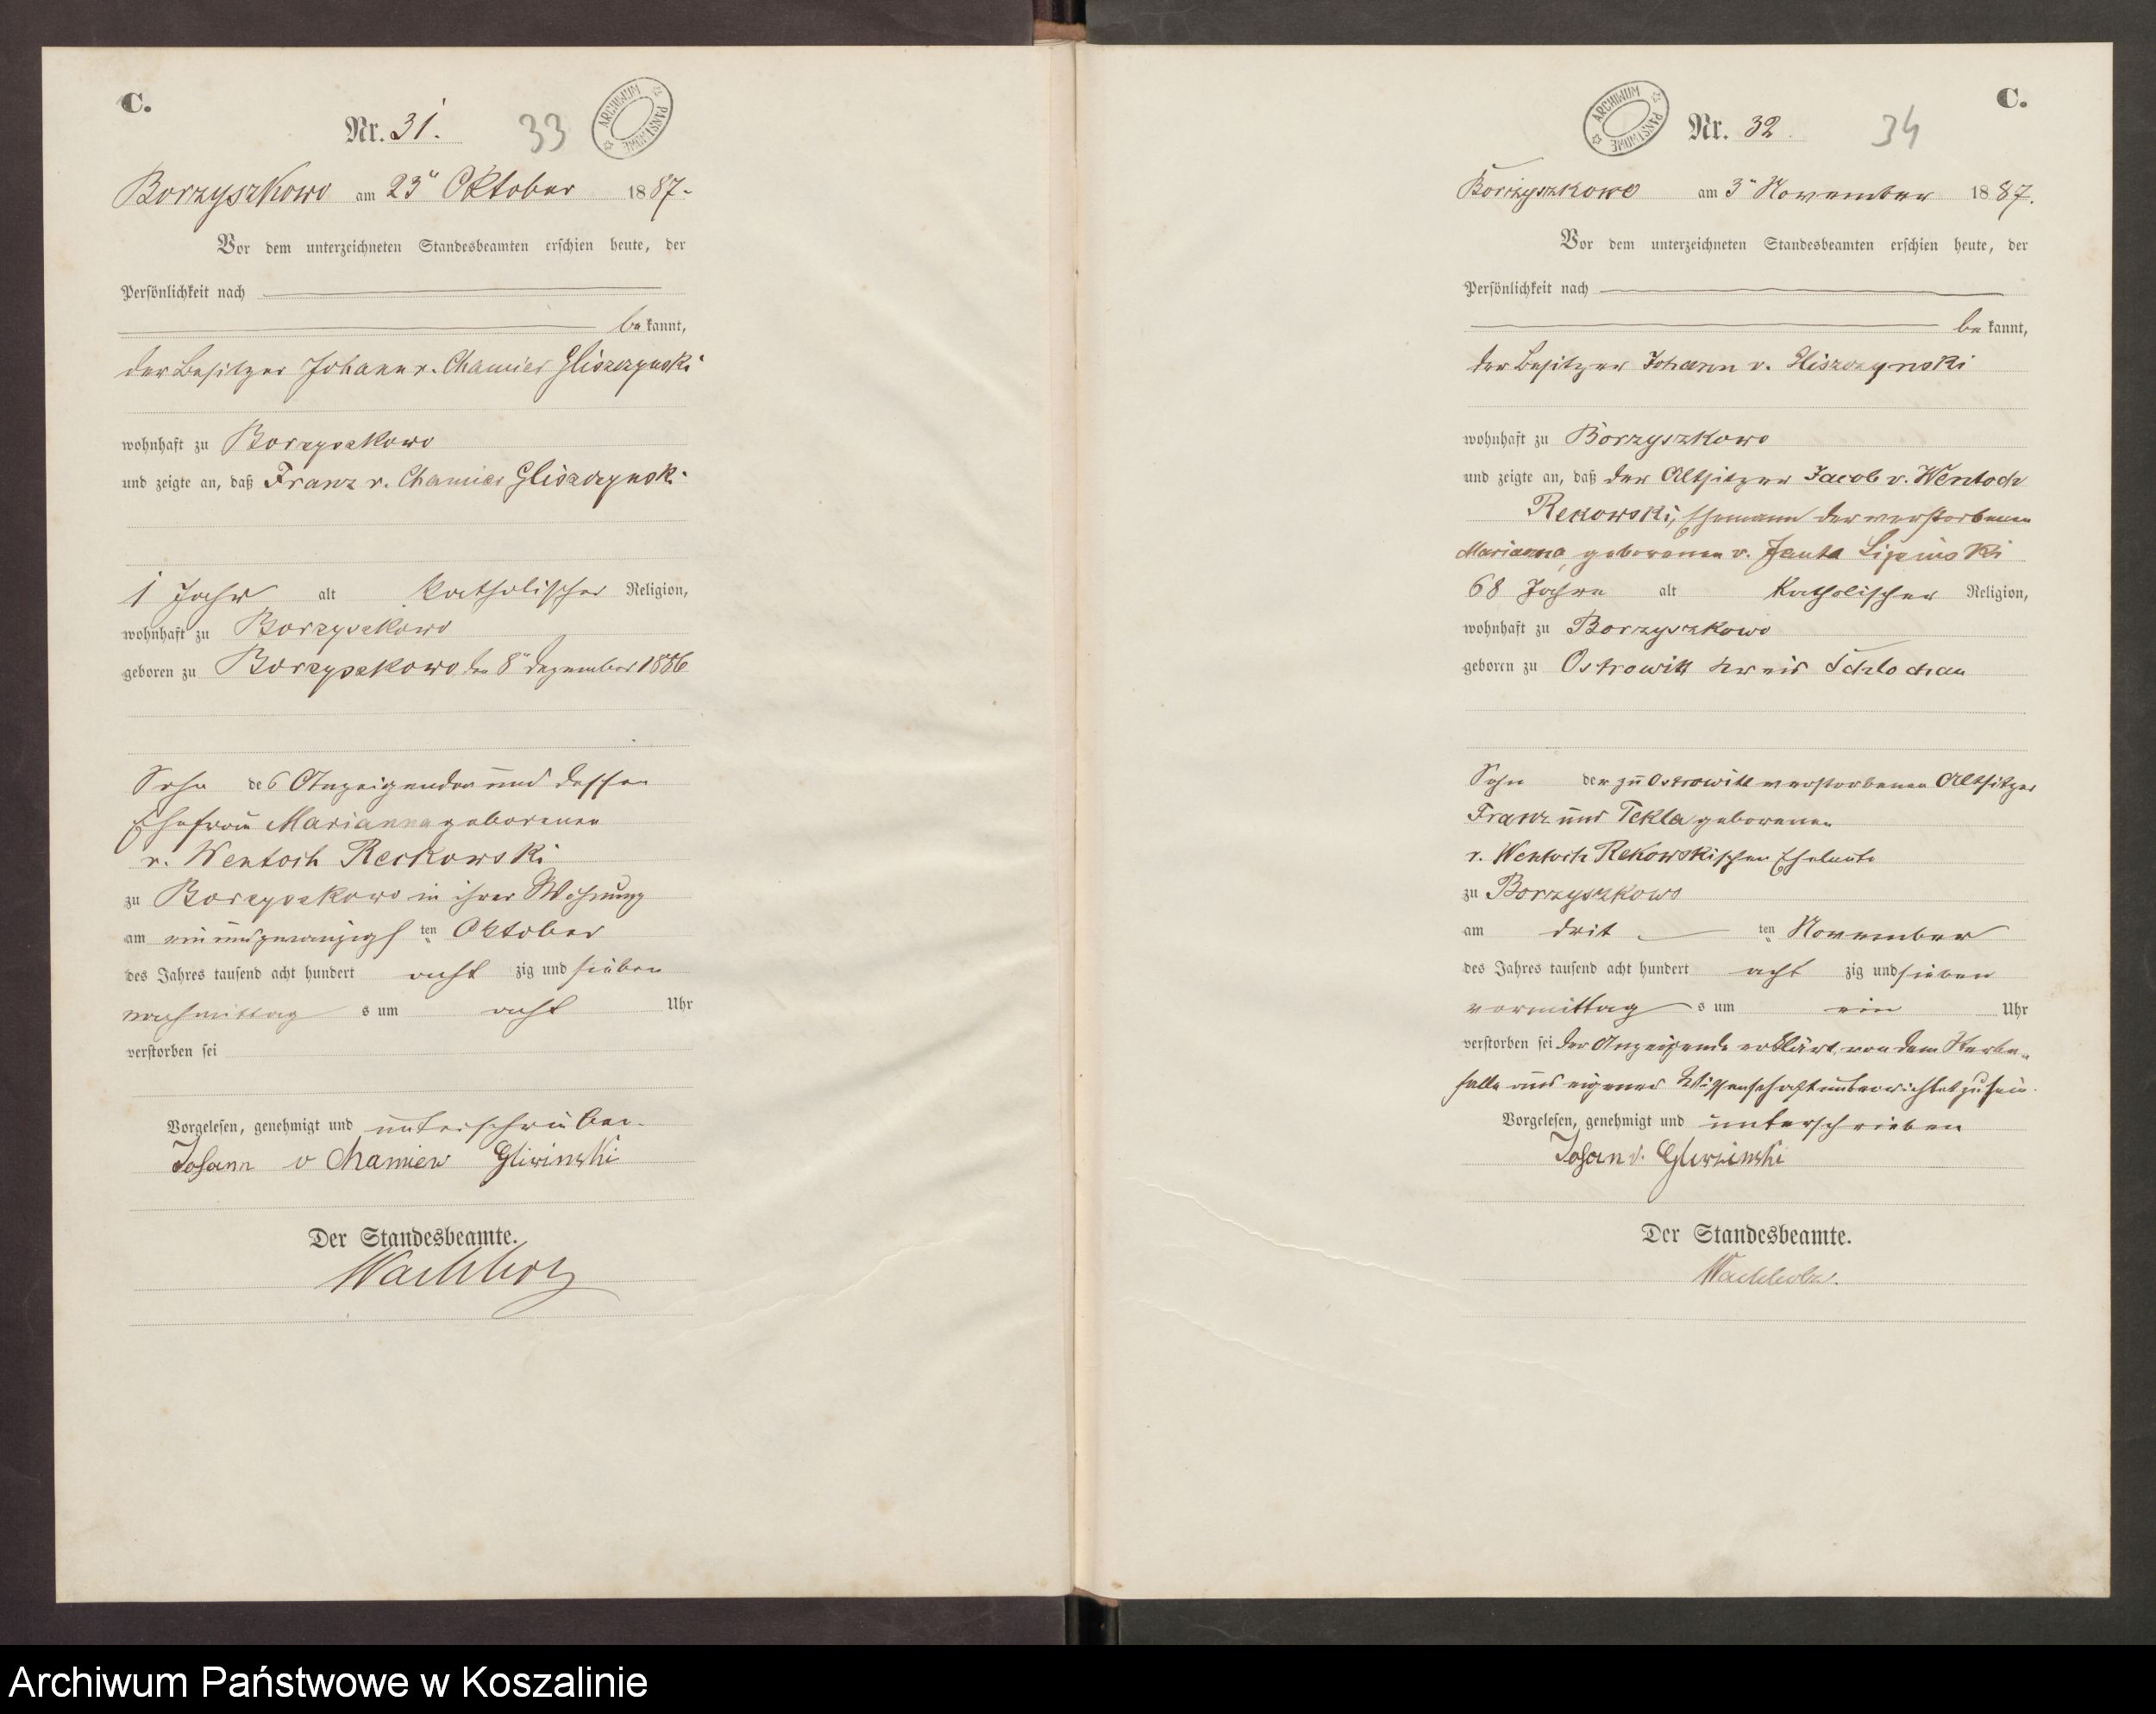 C.
Nr. 31. 33
ARCHIWUM PAŃSTWOWE
Borzyszkowo am 23ⁿ Oktober 1887.
Vor dem unterzeichneten Standesbeamten erschien heute, der
Persönlichkeit nach
bekannt,
der Besitzer Johann v. Chamier Gliszczynski
wohnhaft zu Borzyszkowo
und zeigte an, daß Franz v. Chamier Gliszczynski
1 Jahr alt katholischer Religion,
wohnhaft zu Borzyszkowo
geboren zu Borzyszkowo den 8ⁿ Dezember 1886
Sohn des Anzeigenden und dessen
Ehefrau Marianna geborenen
v. Wentoch Reckowski
zu Borzyszkowo in ihrer Wohnung
am ein und zwanzigsten Oktober
des Jahres tausend acht hundert acht zig und sieben
nachmittags um acht Uhr
verstorben sei
Vorgelesen, genehmigt und unterschrieben.
Johann v Chamier Glisinski
Der Standesbeamte.
Wachholz
C.
ARCHIWUM PAŃSTWOWE
Nr. 32. 34
Borzyszkowo am 3ⁿ November 1887.
Vor dem unterzeichneten Standesbeamten erschien heute, der
Persönlichkeit nach
bekannt,
der Besitzer Johann v. Gliszczynski
wohnhaft zu Borzyszkowo
und zeigte an, daß der Altsitzer Jacob v. Wentoch
Rekowski, Ehemann der verstorbenen
Marianna, geborenen v. Janta Lipinski
68 Jahre alt katholischer Religion,
wohnhaft zu Borzyszkowo
geboren zu Ostrowitt Kreis Schlochau
Sohn der zu Ostrowitt verstorbenen Altsitzer
Franz und Tekla geborenen
v. Wentoch Rekowskischen Eheleute
zu Borzyszkowo
am dritten November
des Jahres tausend acht hundert acht zig und sieben
vormittags um ein Uhr
verstorben sei der Anzeigende erklärt, von dem Sterbe-
falle aus eigener Wissenschaft unterrichtet zu sein.
Vorgelesen, genehmigt und unterschrieben
Johan v.
Der Standesbeamte.
Wachholz.
Archiwum Państwowe w Koszalinie